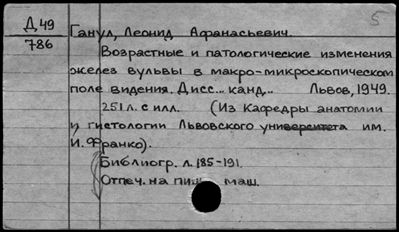 Д 49
786
5
Ганул, Леонид Афанасьевич.
Возрастные и патологические изменения
желез вульвы в макро-микроскопическом
поле видения. Дисс... канд... Львов, 1949.
251 л. с илл. (Из Кафедры анатомии
и гистологии Львовского университета им.
И. Франко).
Библиогр. л. 185-191.
Отпеч. на маш.